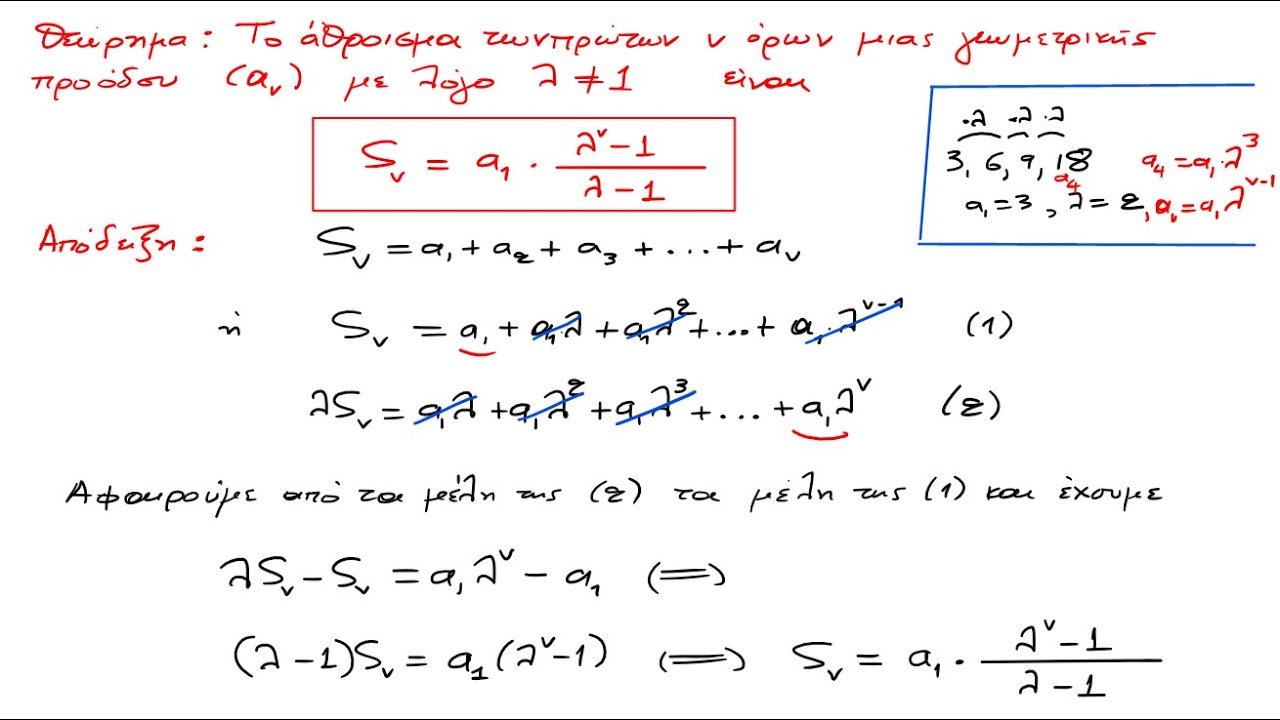 Θεώρημα: Το άθροισμα των πρώτων ν όρων μιας γεωμετρικής
προόδου (αᵥ) με λόγο λ ≠ 1 είναι
Sᵥ = α₁ · (λ^ν - 1)/(λ - 1)
·λ ·λ ·λ
3, 6, 9, 18 α₄ = α₁·λ³
α₄
α₁ = 3, λ = 2, αᵥ = α₁ λ^(ν-1)
Απόδειξη: Sᵥ = α₁ + α₂ + α₃ + ... + αᵥ
ή Sᵥ = α₁ + α₁λ + α₁λ² + ... + α₁λ^(ν-1) (1)
λSᵥ = α₁λ + α₁λ² + α₁λ³ + ... + α₁λ^ν (2)
Αφαιρούμε από τα μέλη της (2) τα μέλη της (1) και έχουμε
λSᵥ - Sᵥ = α₁λ^ν - α₁ ⟺
(λ - 1)Sᵥ = α₁(λ^ν - 1) ⟺ Sᵥ = α₁ · (λ^ν - 1)/(λ - 1)